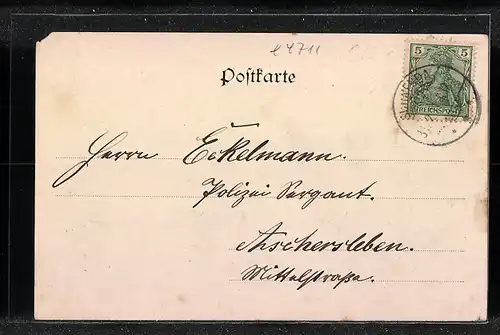 e 4711
Postkarte
5
REICHSPOST
Herrn Eckelmann.
Polizei Sergant.
Aschersleben.
Mittelstraße.